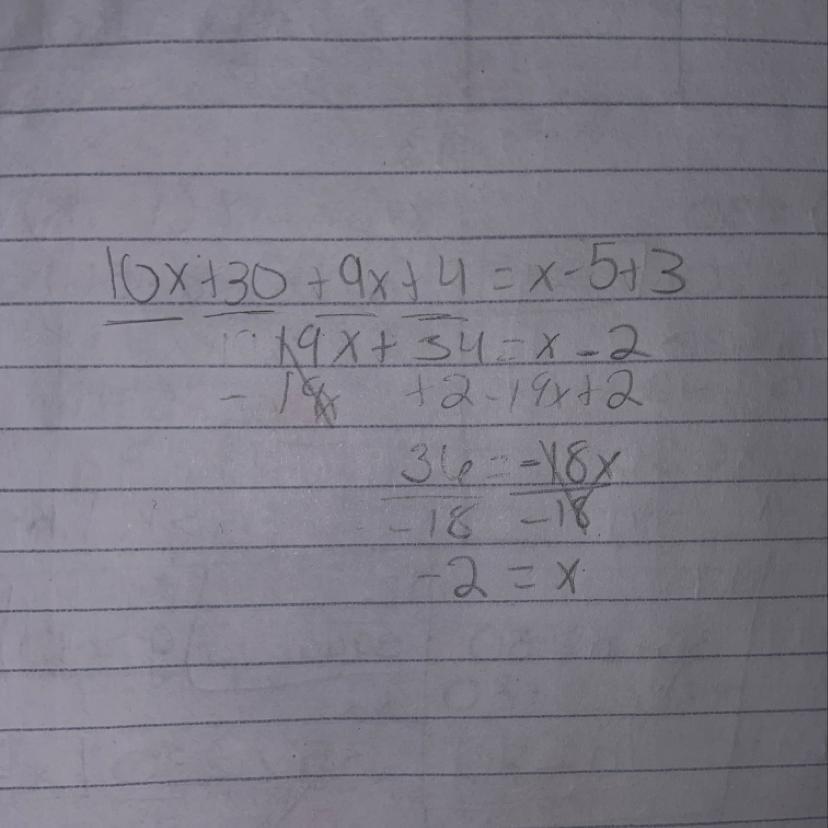 10x+30+9x+4=x-5+3
19x+34=x-2
-19x +2-19x+2
36=-18x
-18 -18
-2=x